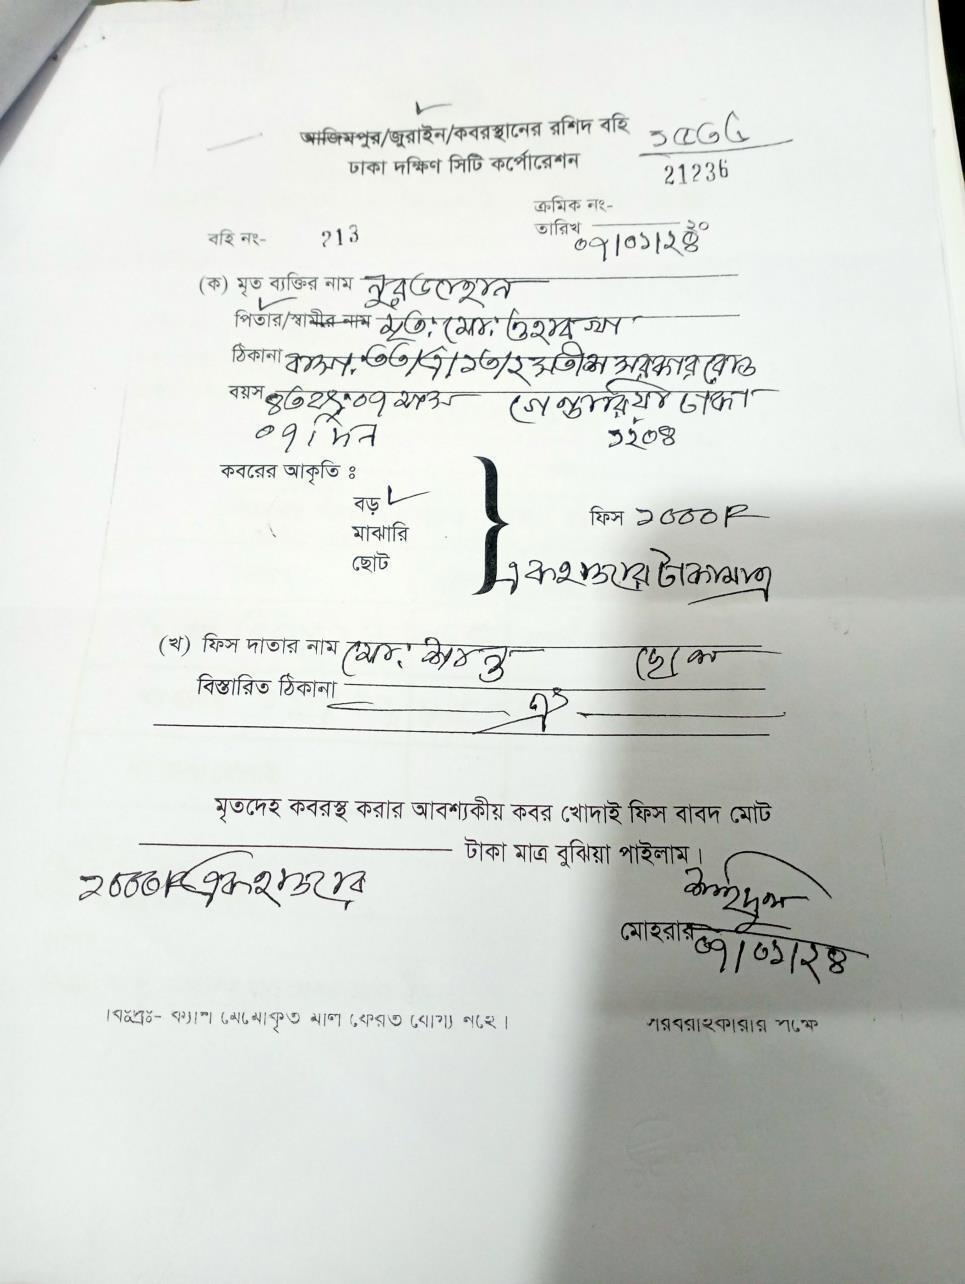 আজিমপুর/জুরাইন/কবরস্থানের রশিদ বহি
ঢাকা দক্ষিণ সিটি কর্পোরেশন
21236
ক্রমিক নং-
বহি নং- 213
তারিখ ০৭/০১/২৪
(ক) মৃত ব্যক্তির নাম নুরজাহান
পিতার/স্বামীর নাম মৃত: মো:
ঠিকানা বাসা: সতীশ সরকার রোড
বয়স ০৭ মাস গেন্ডারিয়া ঢাকা
০৭ দিন ১২০৪
কবরের আকৃতি :
বড়
মাঝারি
ছোট
ফিস ১০০০৳
এক হাজার টাকা মাত্র
(খ) ফিস দাতার নাম মো: ছেলে
বিস্তারিত ঠিকানা
ঐ
মৃতদেহ কবরস্থ করার আবশ্যকীয় কবর খোদাই ফিস বাবদ মোট
টাকা মাত্র বুঝিয়া পাইলাম।
১০০০৳ এক হাজার
মোহরার ০৭/০১/২৪
বিঃদ্রঃ- ক্যাশ মেমোকৃত মাল ফেরত যোগ্য নহে।
সরবরাহকারীর পক্ষে